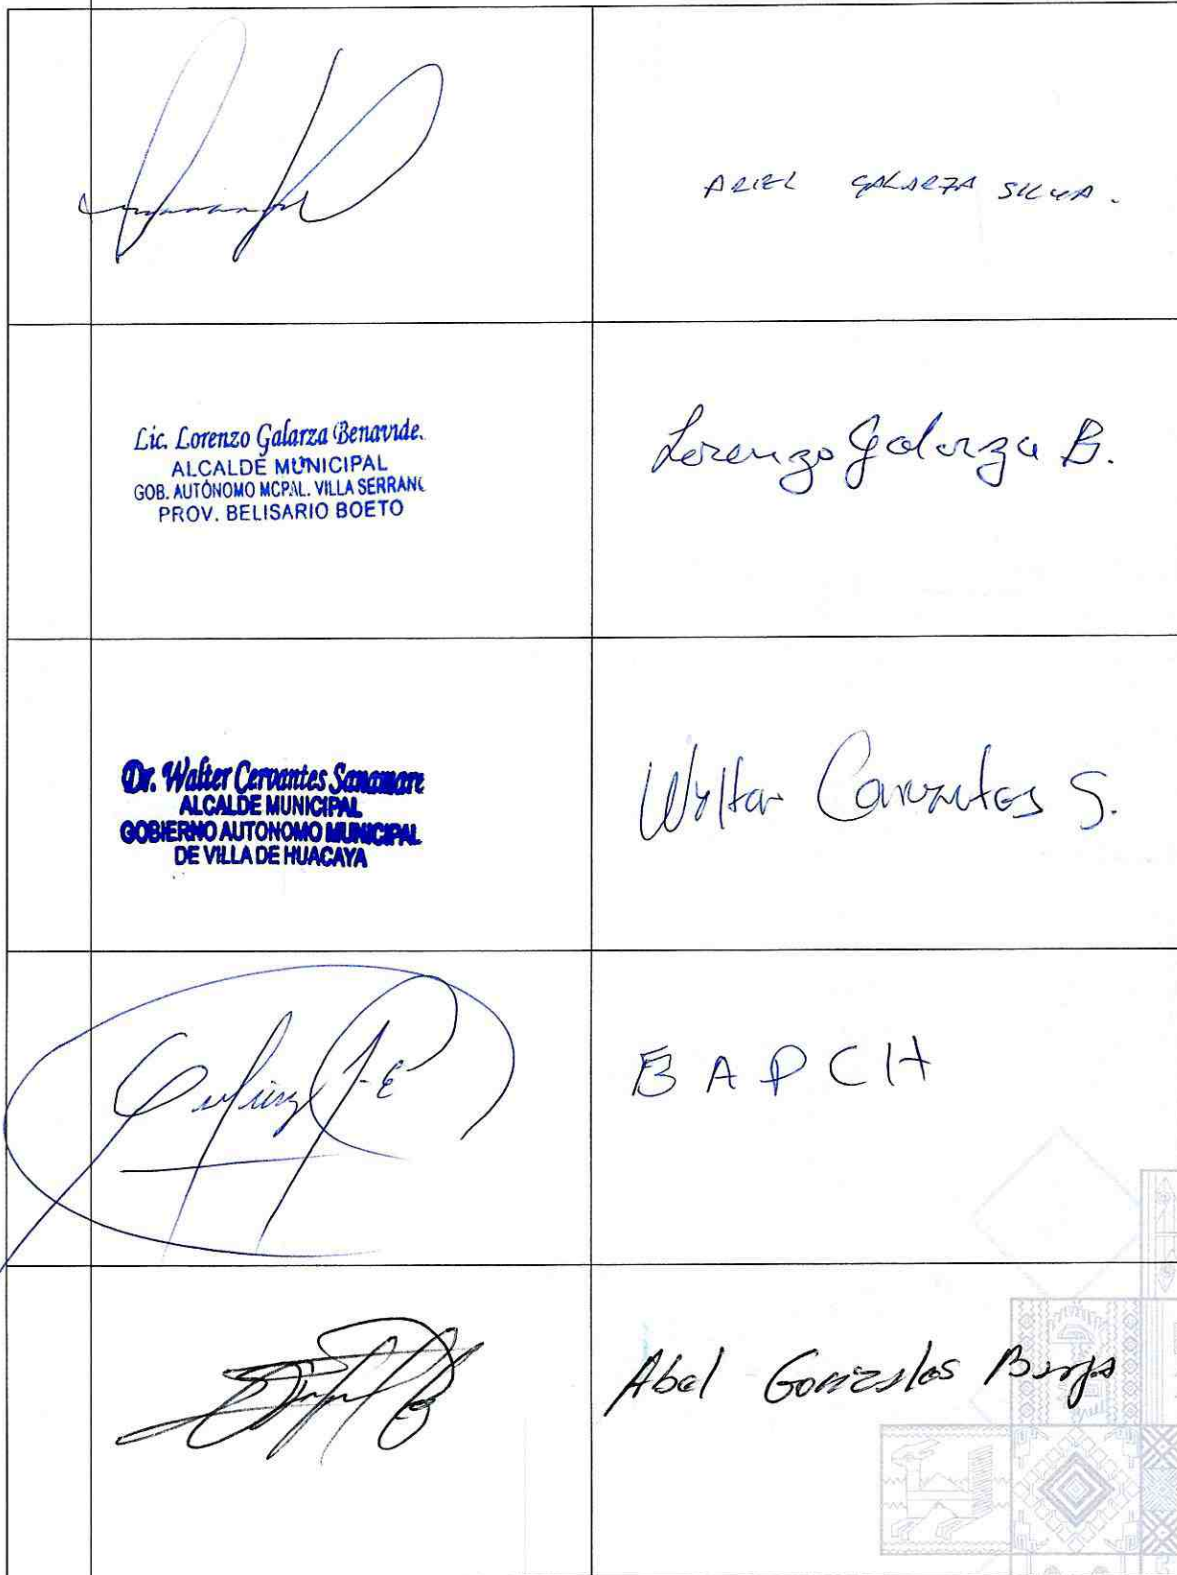 ARIEL GALARZA SILVA.
Lic. Lorenzo Galarza Benavide.
ALCALDE MUNICIPAL
GOB. AUTÓNOMO MCPAL. VILLA SERRANO
PROV. BELISARIO BOETO
Lorenzo Galarza B.
Dr. Walter Cervantes Sanamare
ALCALDE MUNICIPAL
GOBIERNO AUTONOMO MUNICIPAL
DE VILLA DE HUACAYA
Walter Cervantes S.
EAPCH
Abel Gonzales